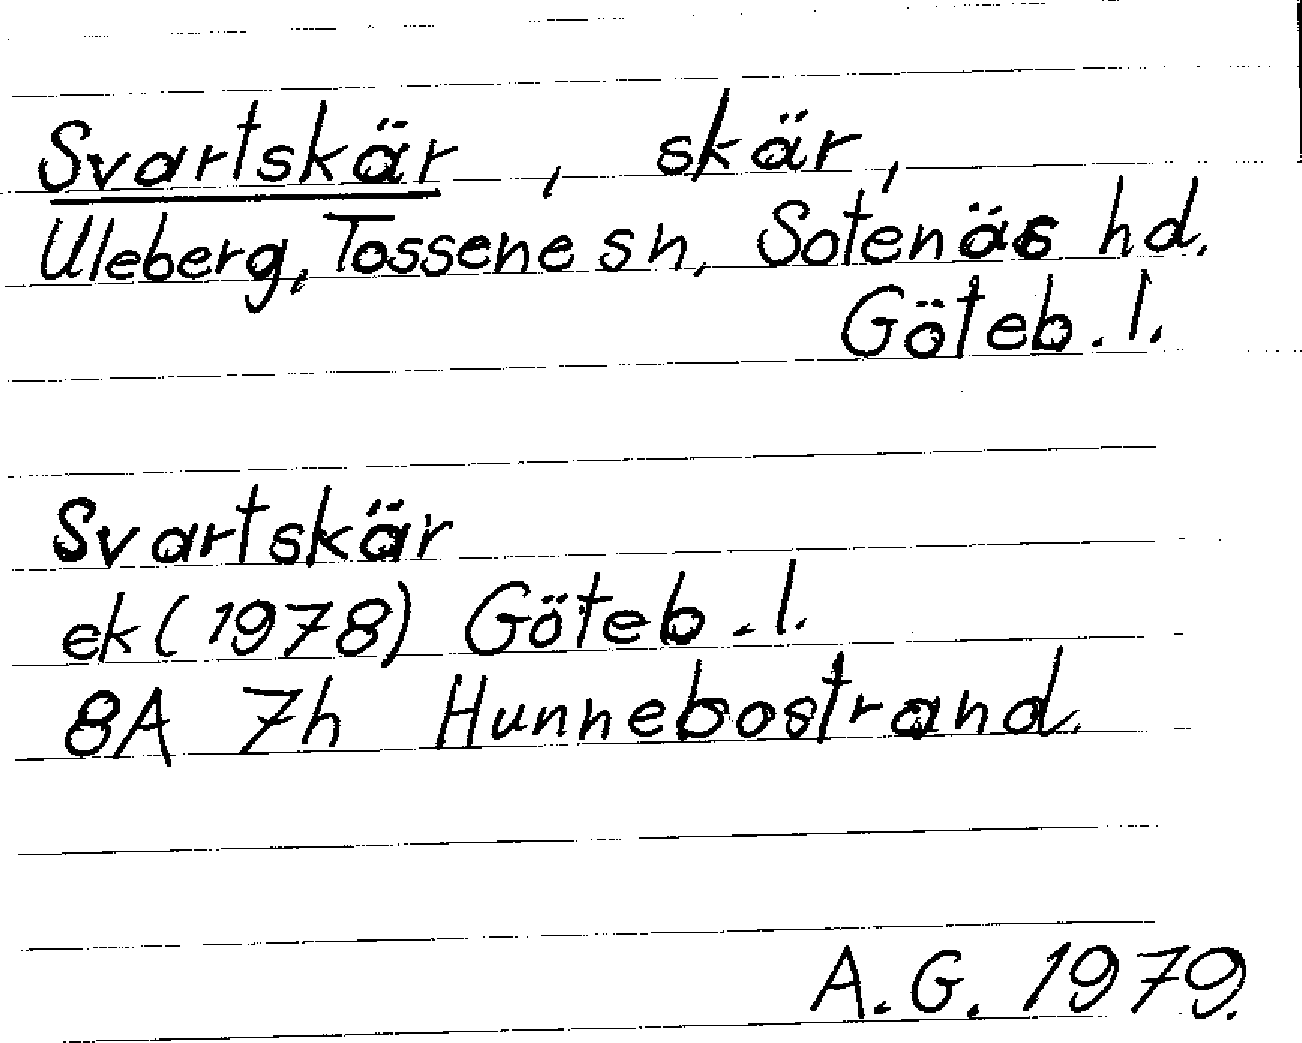 Svartskär, skär,
Uleberg, Tossene sn, Sotenäs hd.
Göteb. l.
Svartskär
ek (1978) Göteb. l.
8A 7h Hunnebostrand.
A. G. 1979.